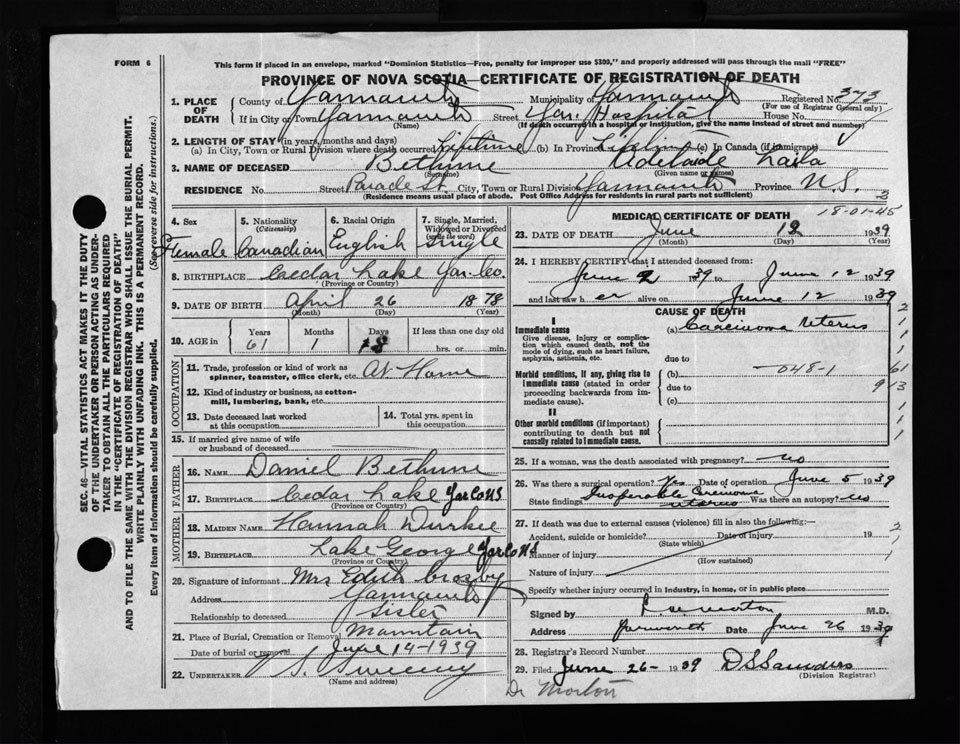 FORM 6
This form if placed in an envelope, marked "Dominion Statistics—Free, penalty for improper use $300," and properly addressed will pass through the mail "FREE"
PROVINCE OF NOVA SCOTIA—CERTIFICATE OF REGISTRATION OF DEATH
1. PLACE OF DEATH County of Yarmouth Municipality of Yarmouth Registered No. 373
(For use of Registrar General only)
If in City or Town Yarmouth Street Yar. Hospital House No.
(Name) (If death occurred in a hospital or institution, give the name instead of street and number)
2. LENGTH OF STAY (in years, months and days)
(a) In City, Town or Rural Division where death occurred Lifetime (b) In Province Lifetime (c) In Canada (if immigrant)
3. NAME OF DECEASED Bethune Adelaide Laila
(Surname) (Given name or names)
RESIDENCE No. Street Parade St. City, Town or Rural Division Yarmouth Province N.S.
(Residence means usual place of abode. Post Office Address for residents in rural parts not sufficient)
4. Sex 5. Nationality (Citizenship) 6. Racial Origin 7. Single, Married, Widowed or Divorced (write the word)
Female Canadian English Single
8. BIRTHPLACE Cedar Lake Yar. Co.
(Province or Country)
9. DATE OF BIRTH April 26 1878
(Month) (Day) (Year)
10. AGE in Years Months Days If less than one day old
61 1 18 hrs. or min.
OCCUPATION
11. Trade, profession or kind of work as spinner, teamster, office clerk, etc. At Home
12. Kind of industry or business, as cotton-mill, lumbering, bank, etc.
13. Date deceased last worked at this occupation
14. Total yrs. spent in this occupation
15. If married give name of wife or husband of deceased
FATHER
16. NAME Daniel Bethune
17. BIRTHPLACE Cedar Lake Yar Co NS
(Province or Country)
MOTHER
18. MAIDEN NAME Hannah Durkee
19. BIRTHPLACE Lake George Yar Co NS
(Province or Country)
20. Signature of informant Mrs Edith Crosby
Address Yarmouth
Relationship to deceased Sister
21. Place of Burial, Cremation or Removal Mountain
Date of burial or removal June 14-1939
22. UNDERTAKER V. S. Sweeny
(Name and address)
MEDICAL CERTIFICATE OF DEATH
18-01-45
23. DATE OF DEATH June 12 1939
(Month) (Day) (Year)
24. I HEREBY CERTIFY that I attended deceased from:
June 2 1939 to June 12 1939
and last saw her alive on June 12 1939
CAUSE OF DEATH
I
Immediate cause (a) Carcinoma Uterus
Give disease, injury or complication which caused death, not the mode of dying, such as heart failure, asphyxia, asthenia, etc.
due to
Morbid conditions, if any, giving rise to immediate cause (stated in order proceeding backwards from immediate cause).
(b) 048-1
due to
(c)
61
9 13
II
Other morbid conditions (if important) contributing to death but not causally related to immediate cause.
25. If a woman, was the death associated with pregnancy? no
26. Was there a surgical operation? Yes Date of operation June 5 1939
State findings Inoperable Carcinoma uterus Was there an autopsy? no
27. If death was due to external causes (violence) fill in also the following:—
Accident, suicide or homicide? Date of injury 19
(State which)
Manner of injury
(How sustained)
Nature of injury
Specify whether injury occurred in industry, in home, or in public place
Signed by M.D.
Address Yarmouth Date June 26 1939
28. Registrar's Record Number
29. Filed June 26- 1939 D S Saunders
(Division Registrar)
Dr Morton
SEC. 46—VITAL STATISTICS ACT MAKES IT THE DUTY
OF THE UNDERTAKER OR PERSON ACTING AS UNDER-
TAKER TO OBTAIN ALL THE PARTICULARS REQUIRED
IN THE "CERTIFICATE OF REGISTRATION OF DEATH"
AND TO FILE THE SAME WITH THE DIVISION REGISTRAR WHO SHALL ISSUE THE BURIAL PERMIT.
WRITE PLAINLY WITH UNFADING INK. THIS IS A PERMANENT RECORD.
Every item of Information should be carefully supplied. (See reverse side for instructions.)